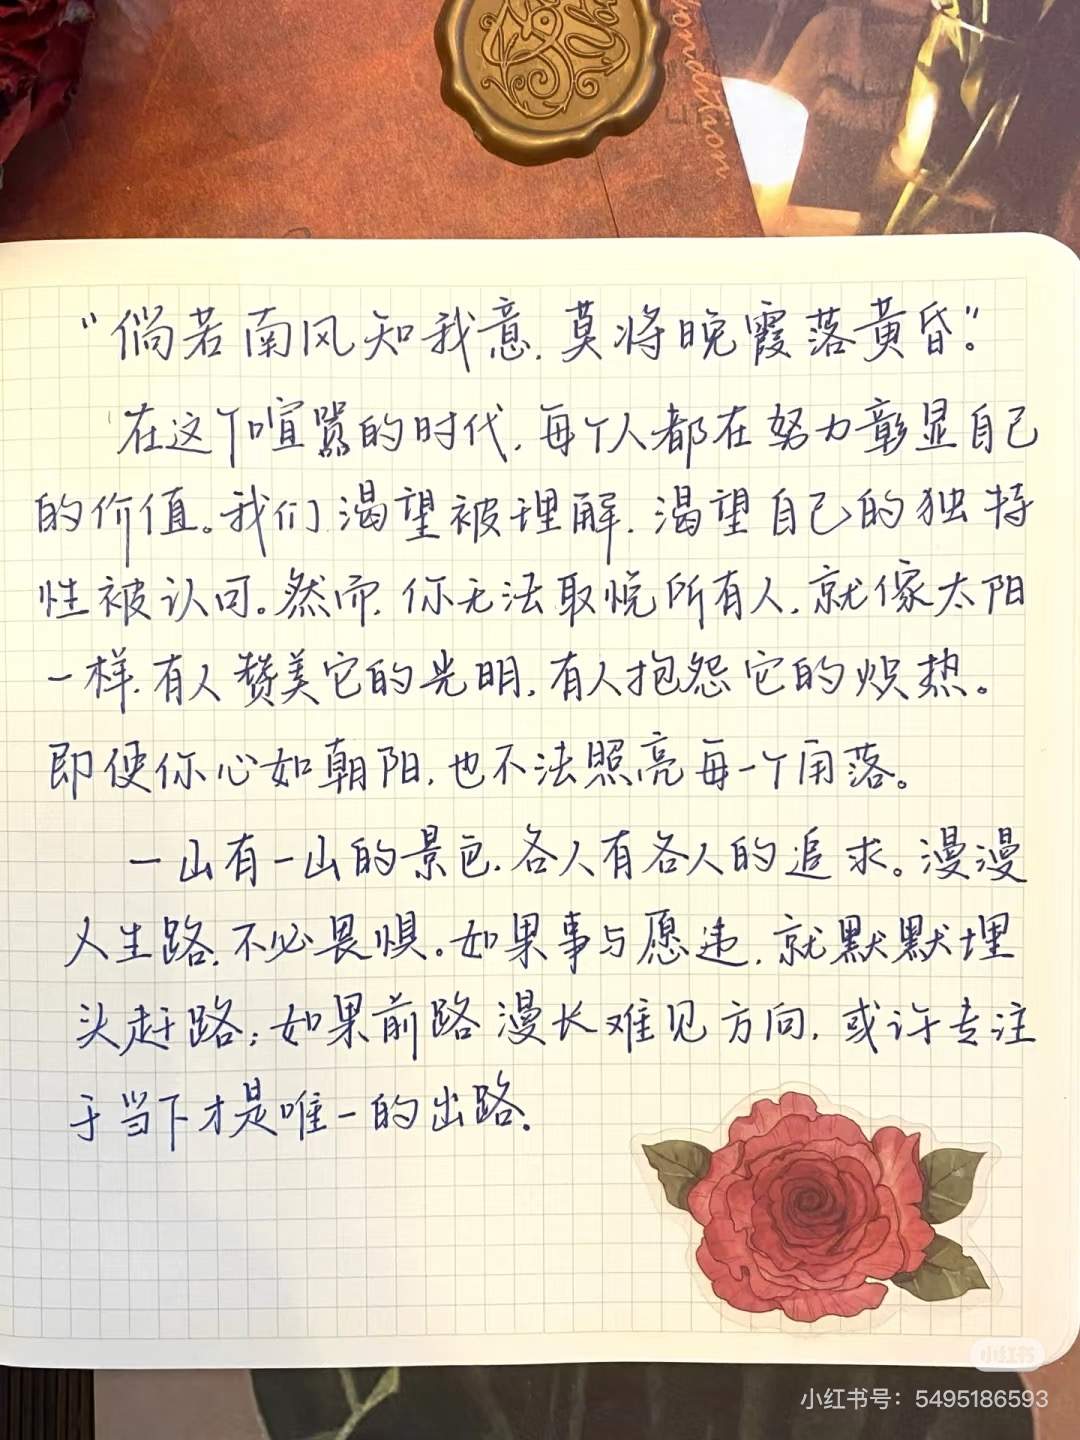 ondition
“倘若南风知我意，莫将晚霞落黄昏”。
在这个喧嚣的时代，每个人都在努力彰显自己
的价值。我们渴望被理解，渴望自己的独特
性被认可。然而，你无法取悦所有人，就像太阳
一样，有人赞美它的光明，有人抱怨它的炽热。
即使你心如朝阳，也不法照亮每一个角落。
一山有一山的景色，各人有各人的追求。漫漫
人生路，不必畏惧。如果事与愿违，就默默埋
头赶路；如果前路漫长难见方向，或许专注
于当下才是唯一的出路。
小红书
小红书号：5495186593